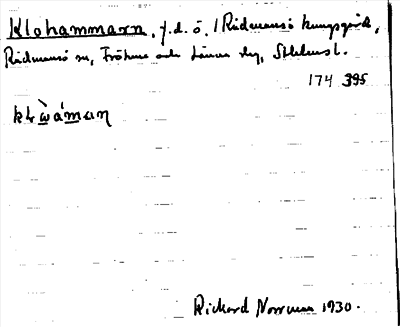 Klohammarn, f.d. ö, i Rådmansö kungsgård,
Rådmansö sn, Frötuna och Länna skg, Sthlmsl.
174 395
Rickard Norrman 1930.